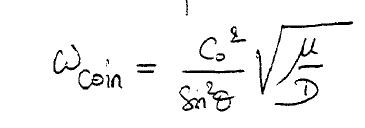 ω_coin = C₀² / sin²θ √(μ/D)